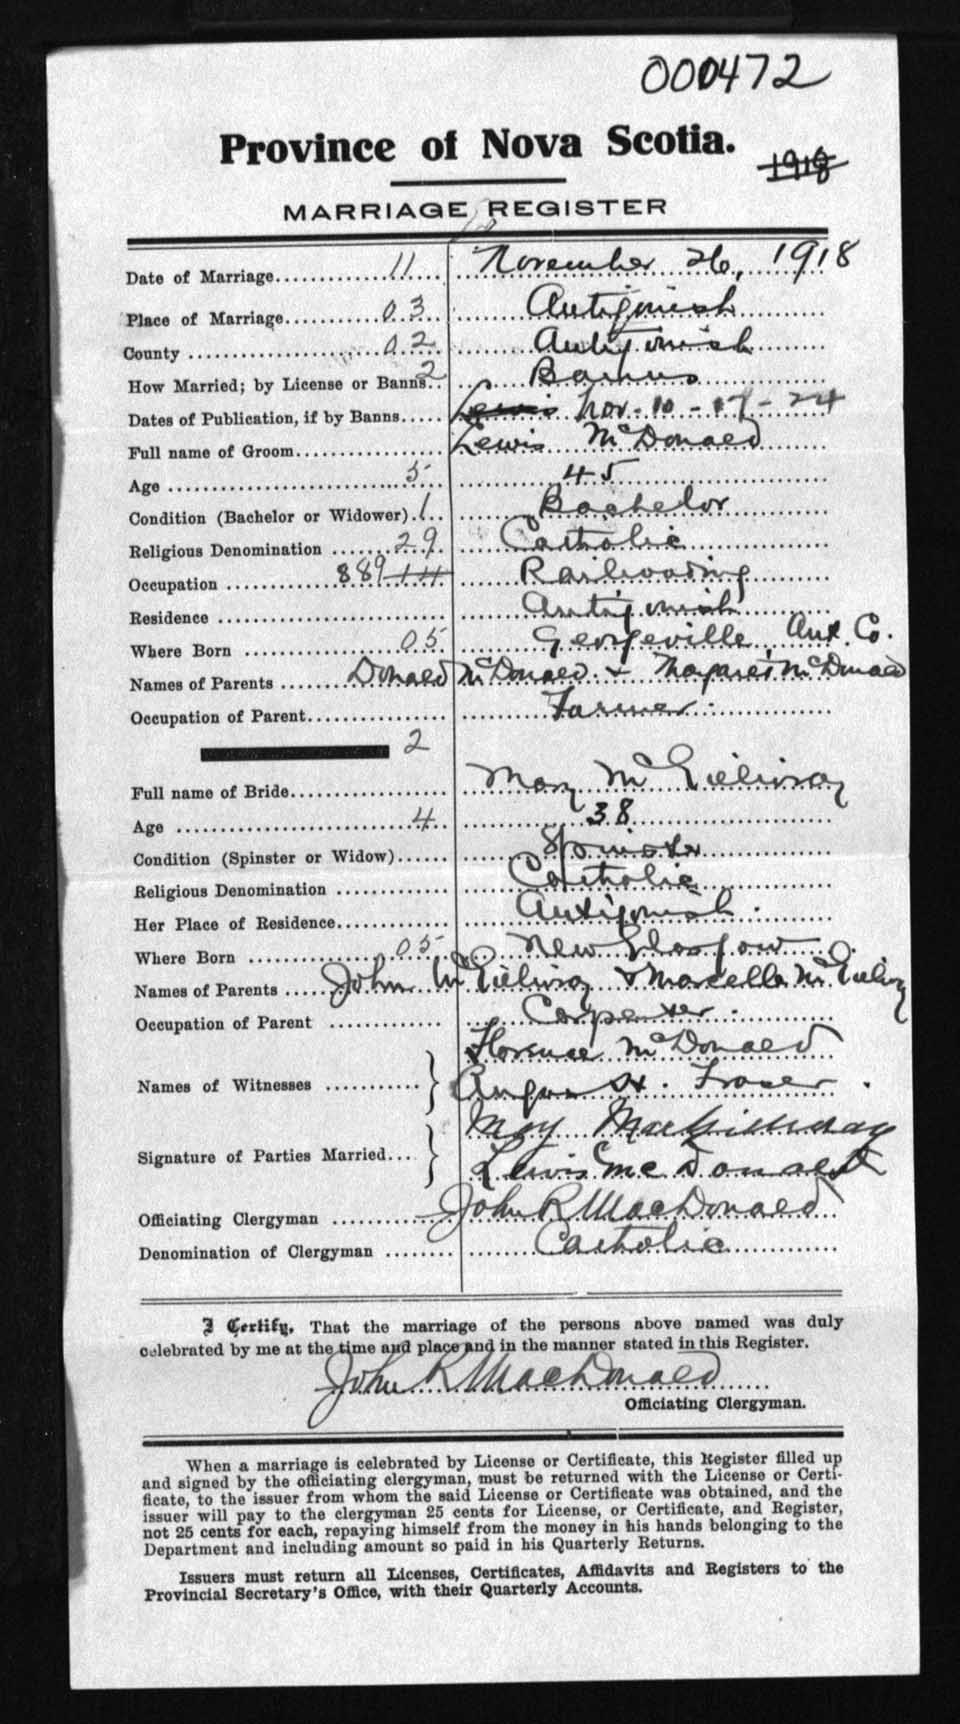 000472
Province of Nova Scotia.
1918
MARRIAGE REGISTER
Date of Marriage 11 November 26, 1918
Place of Marriage 03 Antigonish
County 02 Antigonish
How Married; by License or Banns 2 Banns
Dates of Publication, if by Banns Lewis Nov - 10 - 17 - 24
Full name of Groom Lewis McDonald
Age 5 45
Condition (Bachelor or Widower) 1 Bachelor
Religious Denomination 29 Catholic
Occupation 889 14 Railroading
Residence Antigonish
Where Born 05 Georgeville Ant. Co.
Names of Parents Donald McDonald & Margaret McDonald
Occupation of Parent Farmer
2
Full name of Bride Mary McGillivray
Age 4 38
Condition (Spinster or Widow) Spinster
Religious Denomination Catholic
Her Place of Residence Antigonish
Where Born 05 New Glasgow
Names of Parents John McGillivray & Marcella McGillivray
Occupation of Parent Carpenter
Names of Witnesses Florence McDonald
Angus H. Fraser
Signature of Parties Married May MacGillivray
Lewis McDonald
Officiating Clergyman John R MacDonald
Denomination of Clergyman Catholic
I Certify, That the marriage of the persons above named was duly
celebrated by me at the time and place and in the manner stated in this Register.
John R MacDonald
Officiating Clergyman.
When a marriage is celebrated by License or Certificate, this Register filled up
and signed by the officiating clergyman, must be returned with the License or Certi-
ficate, to the issuer from whom the said License or Certificate was obtained, and the
issuer will pay to the clergyman 25 cents for License, or Certificate, and Register,
not 25 cents for each, repaying himself from the money in his hands belonging to the
Department and including amount so paid in his Quarterly Returns.
Issuers must return all Licenses, Certificates, Affidavits and Registers to the
Provincial Secretary's Office, with their Quarterly Accounts.